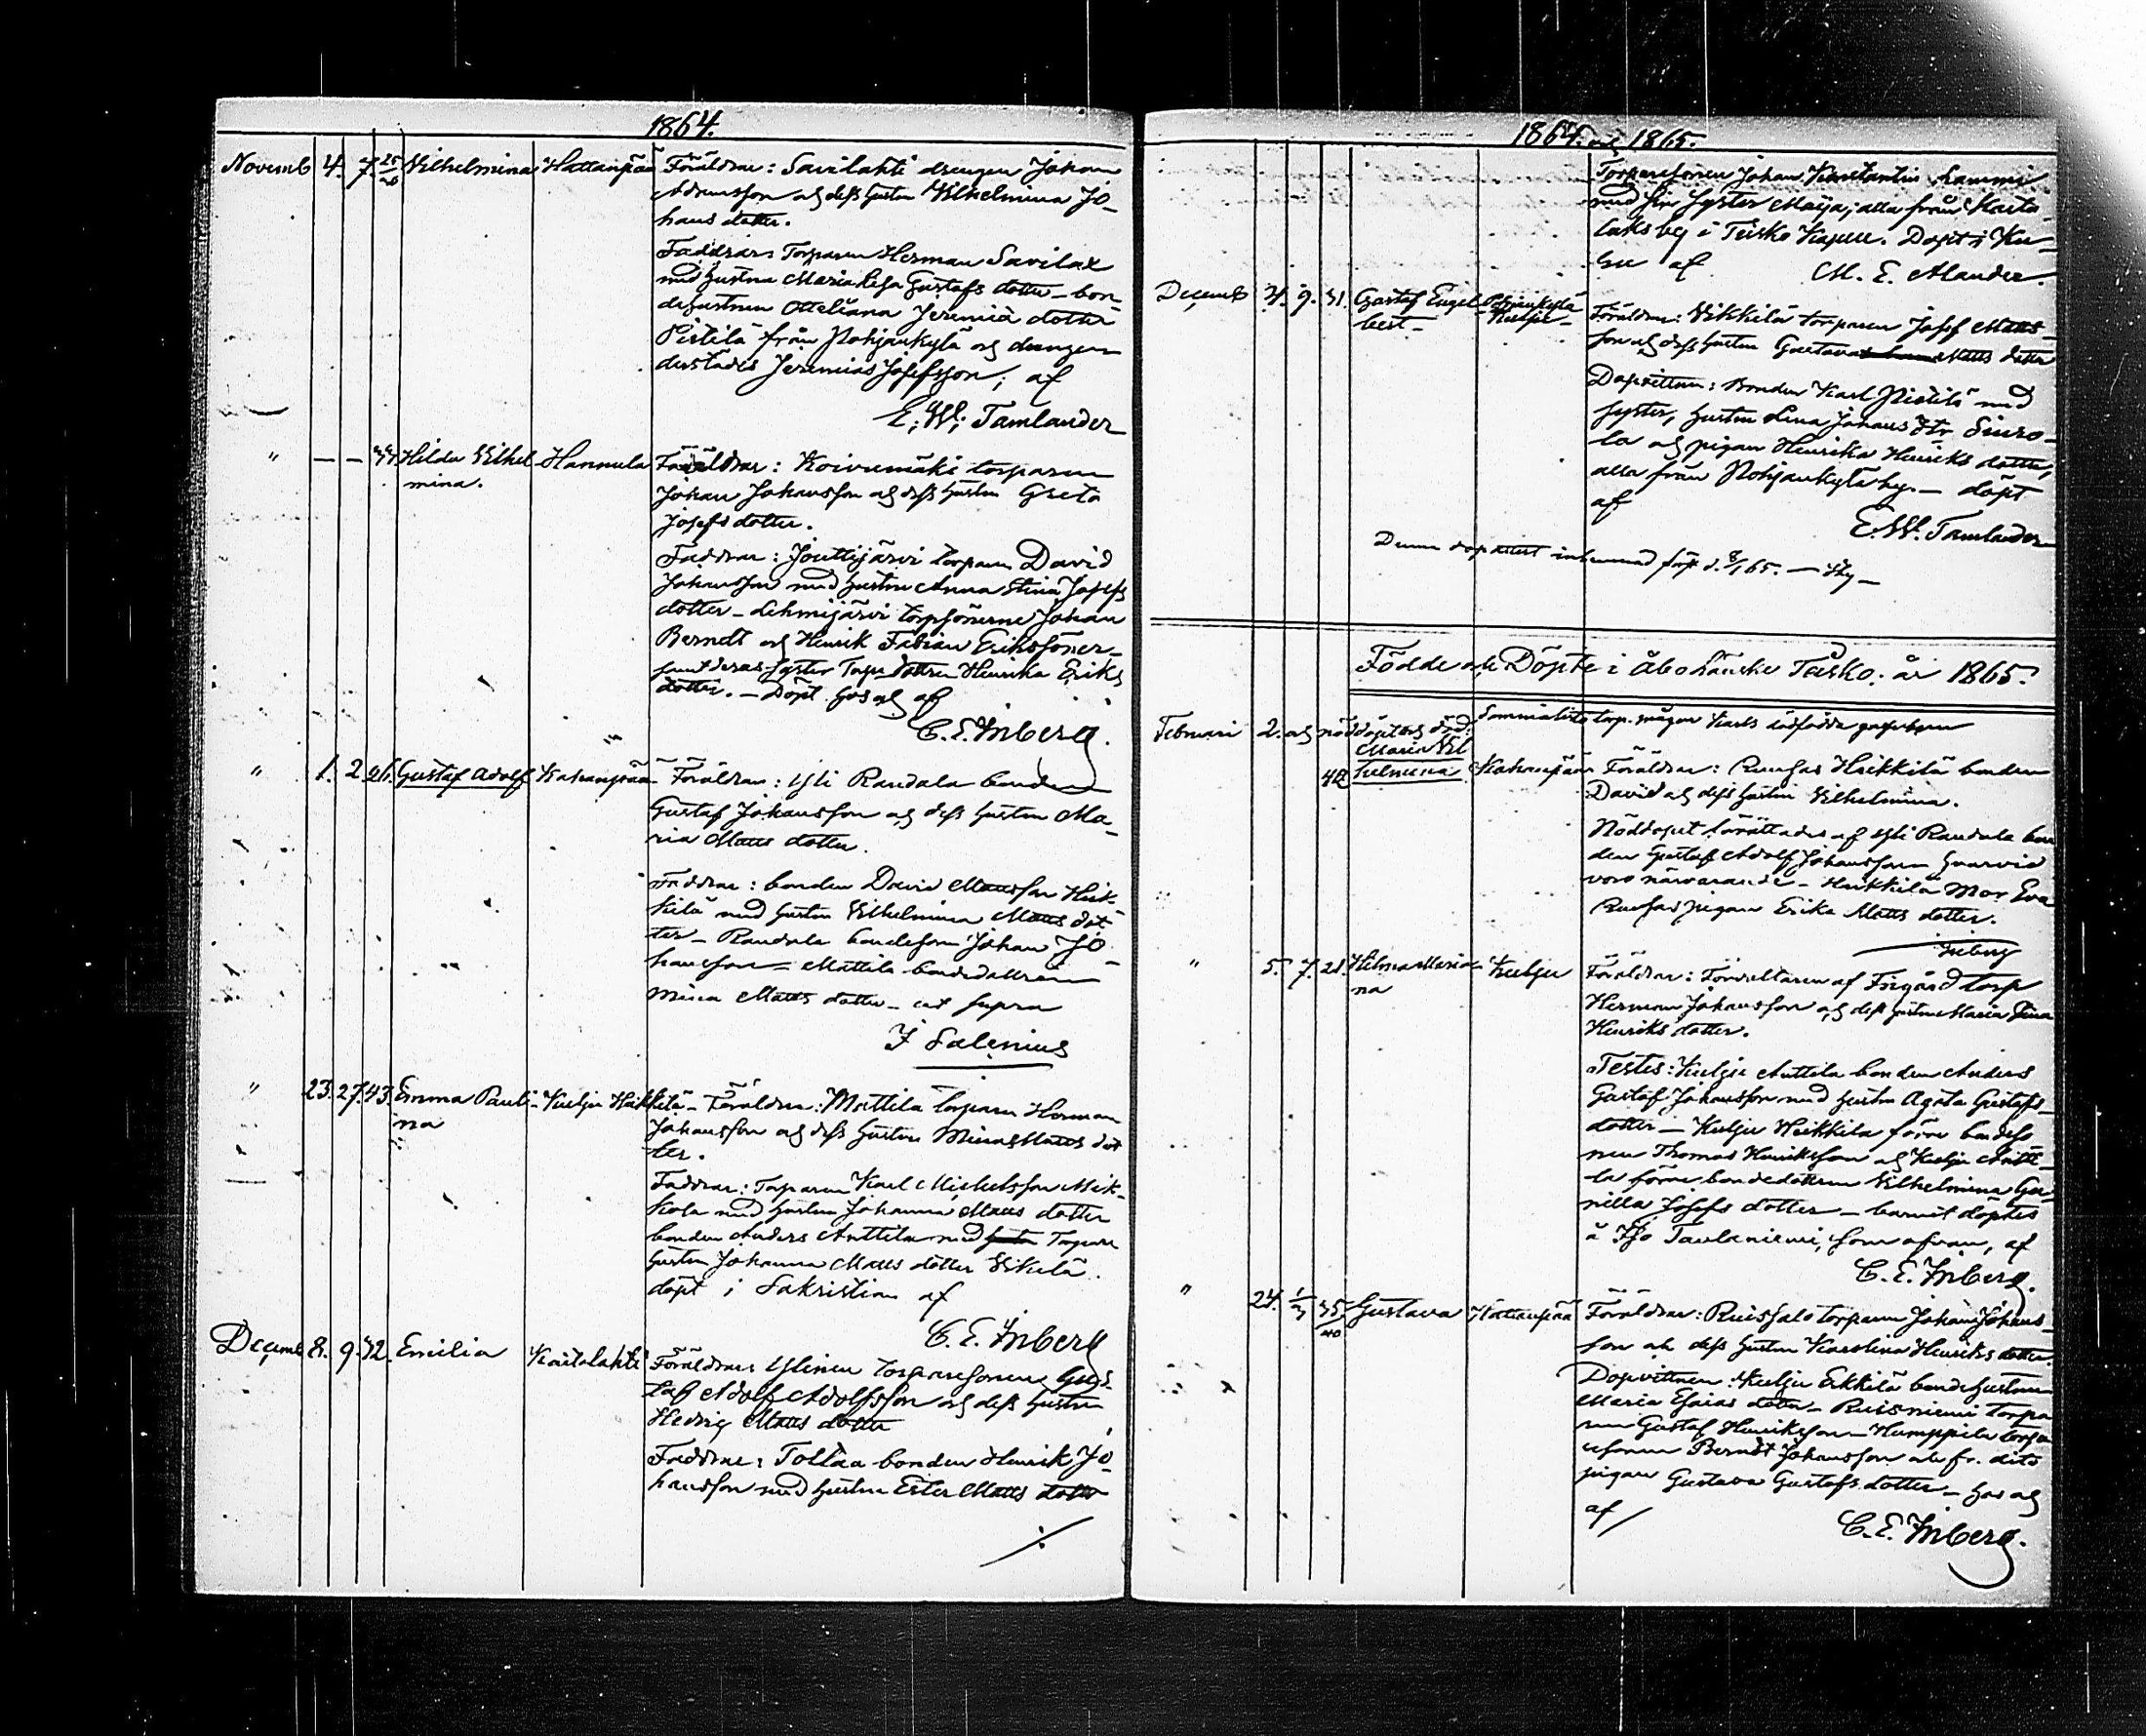 1864.
Novemb 4. 7. 25/26 Vilhelmina Hattanpää Föräldrar: Savilahti drengen Johan
Adamsson och dess hustru Vilhelmina Jo-
hans dotter.
Faddrar: Torparen Herman Savilax
med hustru Maria Lisa Gustafs dotter - bon-
dehustrun Ottiliana Jeremiæ dotter
Pistilä från Pohjankylä och drengen
derstädes Jeremias Josefsson; af
E. W. Tamlander
" — — 34 Hilda Vilhel- Hannula Föräldrar: Koivumäki torparen
mina. Johan Johansson och dess hustru Greta
Josefs dotter.
Faddrar: Jouttijärvi torparen David
Johansson med hustru Anna Stina Josefs
dotter - Lehmijärvi torpsönerne Johan
Berndt och Henrik Fabian Erikssöner -
samt deras syster Torp dottren Henrika Eriks
dotter. - Döpt hos och af
C. E. Inberg.
" 1. 2. 26. Gustaf Adolf Kahanpää Föräldrar: Yli Raudala bonden
Gustaf Johansson och dess hustru Ma-
ria Matts dotter.
Faddrar: bonden David Mattsson Heik-
kilä med hustru Vilhelmina Matts dot-
ter - Raudala bondeson Johan Jo-
hansson - Mattila bondedottren
Mina Matts dotter - ut supra
J Salenius
" 23. 27. 43. Emma Pauli- Kulju Heikkilä - Föräldrar: Mattila torparen Herman
na Johansson och dess hustru Mina Matts dot
ter.
Faddrar: Torparen Karl Michelsson Mik-
kola med hustru Johanna Matts dotter
bonden Anders Anttila med Torpare
hustru Johanna Matts dotter Vikelä.
döpt i Sakristian af
C. E. Inberg
Decemb 8. 9. 32. Emilia Kaitalahti Föräldrar: Ylinen torparesonen Gus-
taf Adolf Adolfsson och dess hustru
Hedvig Matts dotter
Faddrar: Tollaa bonden Henrik Jo-
hansson med hustru Ester Matts dotter
./.
1864. och 1865.
Torparesonen Johan Konstantin
med syster Maija; alla från Kaita-
laks by i Teisko Kapell. Döpt i Ku-
ru af M. E. Alander.
Decemb 3. 9. 31. Gustaf Engel- Pohjankylä
bert - Föräldrar: Vikkilä torparen Josef Matts-
son och dess hustru Gustava Matts dotter
Dopvittnen: Bonden Karl Pistilä med
syster, hustru Lina Johans dtr Siuro-
la och pigan Henrika Henriks dotter,
alla från Pohjankylä by. - döpt
af
E. W. Tamlander
Denna dopattest inlemnad först d. 8/1 65. —
Födde och Döpte i Åbo Länske Teisko. år 1865.
Februari 2. och nöddöpt och död.
Maria Vil
42 helmina Kahanpää Föräldrar: Heikkilä bonden
David och dess hustru Vilhelmina.
Nöddopet förättades af Yli Raudala bon
den Gustaf Adolf Johansson hvarvid
voro närvarande - Heikkilä Mor Eva
pigan Erika Matts dotter.
Inberg
" 5. 7. 21. Hilma Maria- Kulju Föräldrar: Förvaltaren af Frigård torp
na Herman Johansson och dess hustru Maria Lina
Henriks dotter.
Testes: Kulju Anttila bonden Anders
Gustaf Johansson med hustru Agata Gustafs
dotter - Kulju Heikkila förre bondeso
nen Thomas Henriksson och Kulju Antti-
la förre bondedottren Vilhelmina Gu-
nilla Josefs dotter - barnet döptes
å Taulaniemi, som ofvan, af
C. E. Inberg.
" 24. 1/3 35/40 Gustava Kahanpää Föräldrar: Ruissalo torparen Johan Johans-
son och dess hustru Karolina Henriks dotter.
Dopvittnen: Kulju Erkkilä bondehustrun
Maria Esaias dotter - Ruisniemi torpa
ren Gustaf Henriksson - Humppila torpa
resonen Berndt Johansson och fr. dito
pigan Gustava Gustafs dotter - hos och
af
C. E. Inberg.